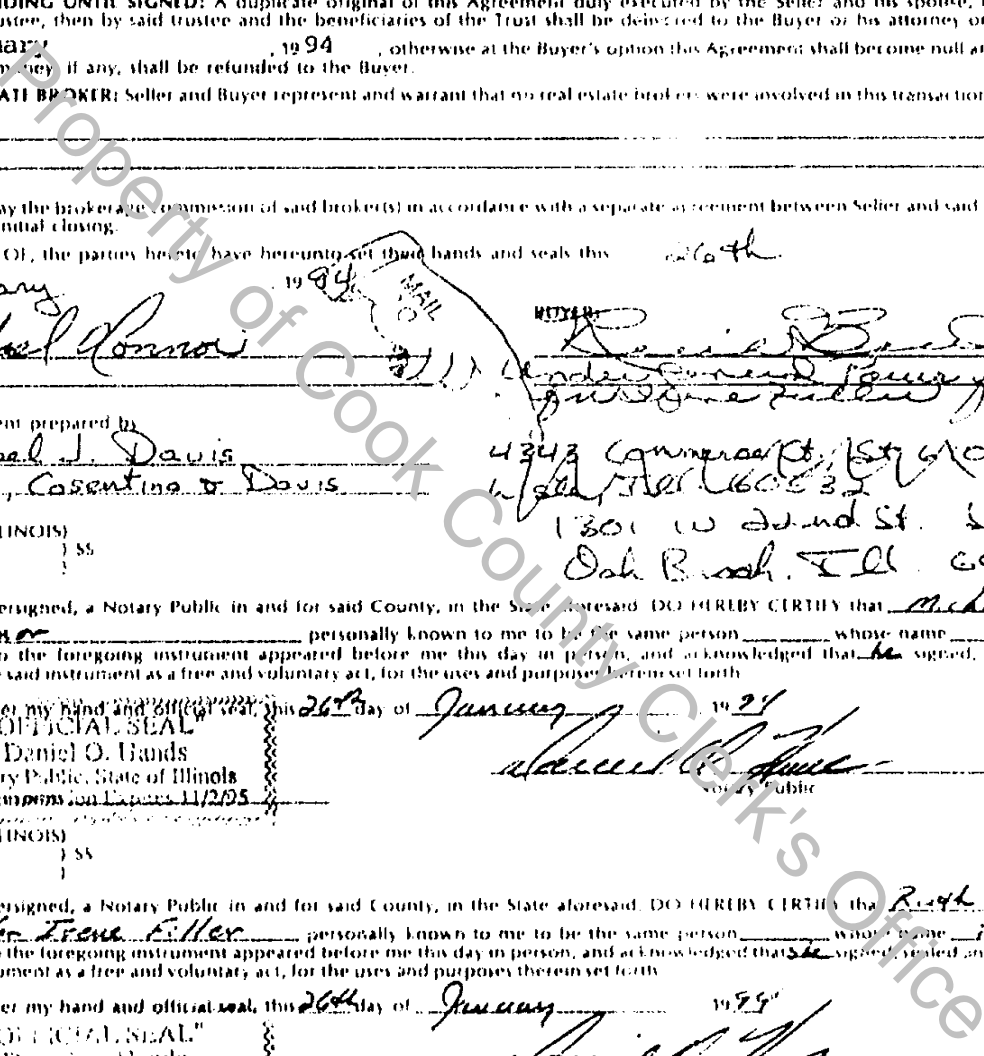 DING UNTIL SIGNED: A duplicate original of this Agreement duly executed by the Seller and his spouse,
ustee, then by said trustee and the beneficiaries of the Trust shall be delivered to the Buyer or his attorney o
uary , 1994 , otherwise at the Buyer's option this Agreement shall become null a
money, if any, shall be refunded to the Buyer.
ATE BROKER: Seller and Buyer represent and warrant that no real estate brokers were involved in this transaction
ay the brokerage commission of said broker(s) in accordance with a separate agreement between Seller and said
nitial closing.
OF, the parties hereto have hereunto set their hands and seals this 26th
ary 1994
MAIL
TO
BUYER:
ael Connor
Under General Power
ent prepared by
ael J. Davis
, Cosentino & Davis
4343 Commerce Ct.
Ill 60532
1301 W 22nd St.
Oak Brook, Ill.
LINOIS)
) SS
)
ersigned, a Notary Public in and for said County, in the State aforesaid, DO HEREBY CERTIFY that Mich
nor personally known to me to be the same person whose name
o the foregoing instrument appeared before me this day in person, and acknowledged that he signed,
said instrument as a free and voluntary act, for the uses and purposes herein set forth
er my hand and official seal, this 26th day of January 1994
OFFICIAL SEAL"
Daniel O. Hands
ry Public, State of Illinois
mmission Expires 11/2/95
Notary Public
LINOIS)
) SS
)
ersigned, a Notary Public in and for said County, in the State aforesaid, DO HEREBY CERTIFY that Ruth
or Irene Filler personally known to me to be the same person whose name
the foregoing instrument appeared before me this day in person, and acknowledged that she signed, sealed an
ument as a free and voluntary act, for the uses and purposes therein set forth
er my hand and official seal, this 26th day of January 1994
OFFICIAL SEAL"
Property of Cook County Clerk's Office